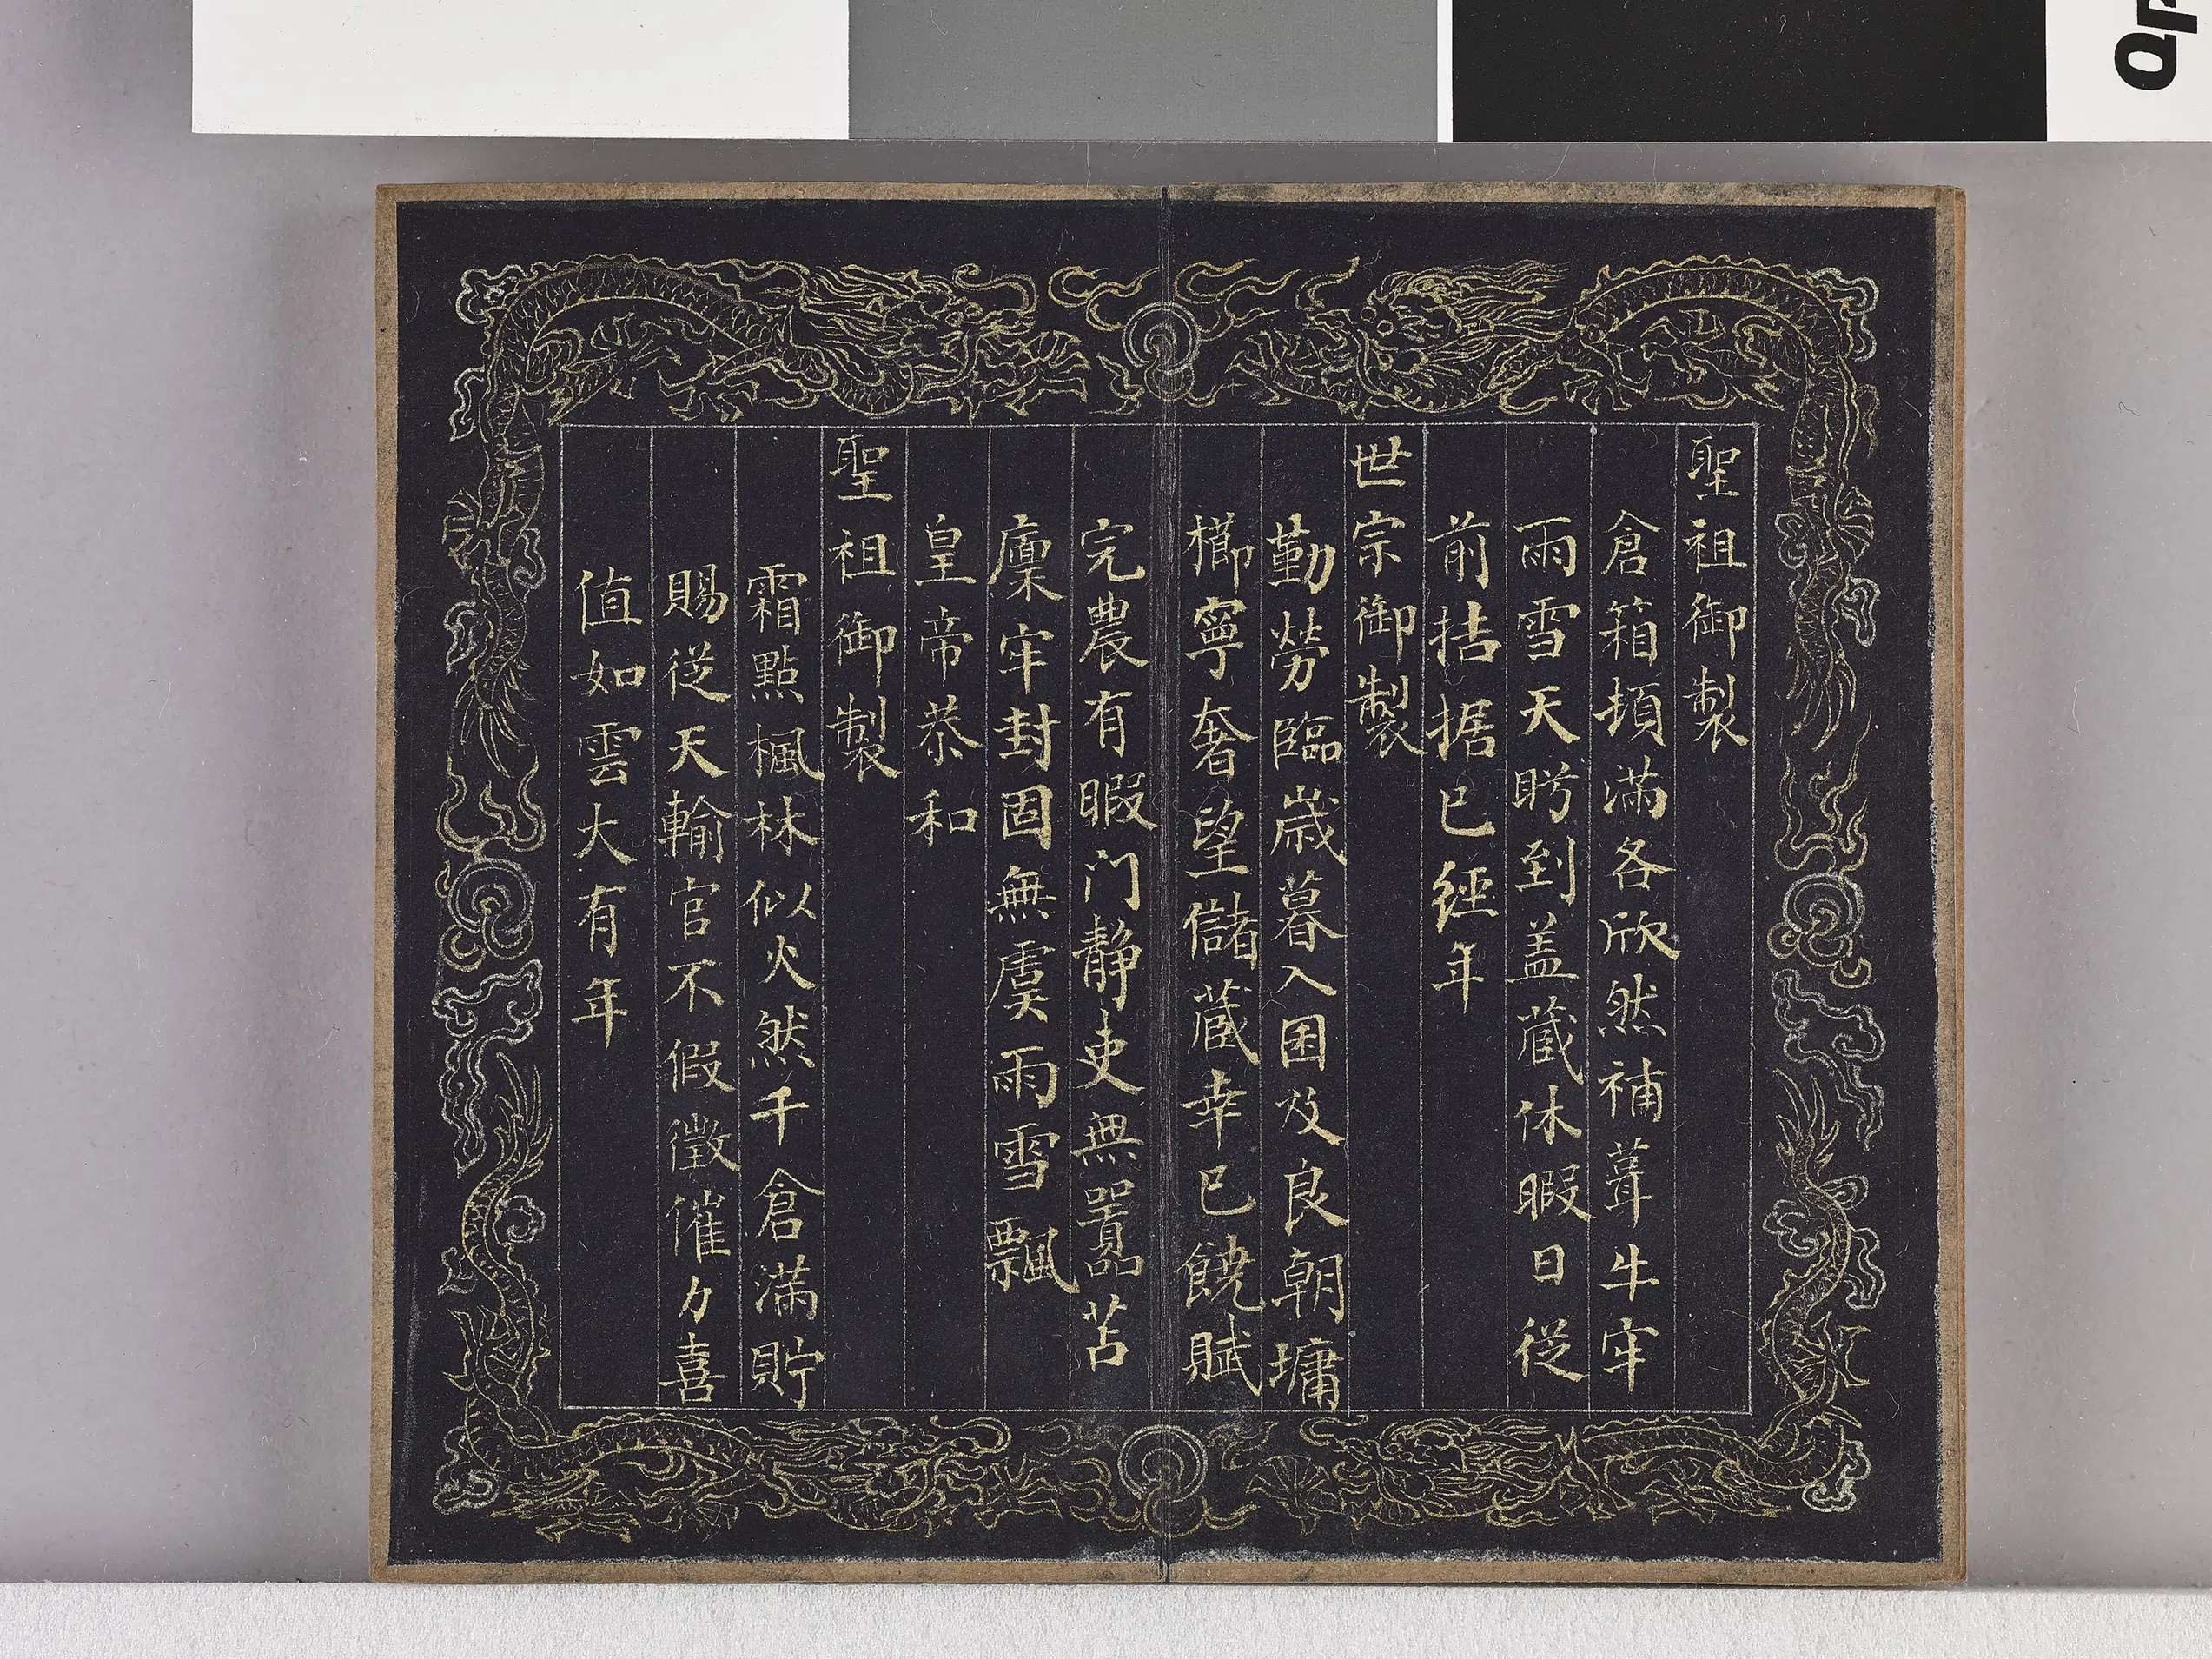 聖祖御製
倉箱頓滿各欣然補葺牛牢
雨雪天盻到盖蔵休暇日從
前拮据已經年
世宗御製
勤勞臨歲暮入囷及良朝墉
櫛寧奢望儲蔵幸已饒賦
完農有暇门静吏無嚣苫
廩牢封固無虞雨雪飄
皇帝恭和
聖祖御製
霜點楓林似火然千倉滿貯
賜從天輸官不假徵催力喜
值如雲大有年